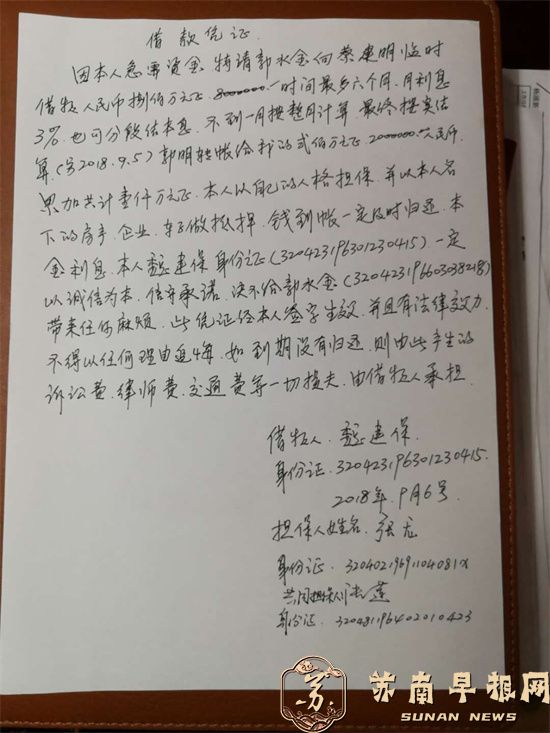 借款凭证
因本人急需资金 特请郭水金向蔡建明临时
借款人民币捌佰万元正.8000000.-时间最多六个月.月利息
3%.也可分段结本息.不到一月按整月计算.最终按实结
算.(另2018.9.5)郭明 转帐给我的贰佰万元正2000000.-人民币
累加共计壹仟万元正.本人以自己的人格担保.并以本人名
下的房产.企业.车子做抵押.钱到帐一定及时归还.本
金利息.本人 建保身份证(320423196301230415)一定
以诚信为本.信守承诺.决不给郭水金(320423196603038218)
带来任何麻烦.此凭证经本人签字生效.并且有法律效力
不得以任何理由追悔.如到期没有归还.则由此产生的
诉讼费.律师费.交通费等一切损失.由借款人承担.
借款人. 建保.
身份证.320423196301230415.
2018年.9月6号
担保人姓名.张尤
身份证.32040219691104081X
共同担保人 莲
身份证.320481196402010423
苏
苏南早报网
SUNAN NEWS